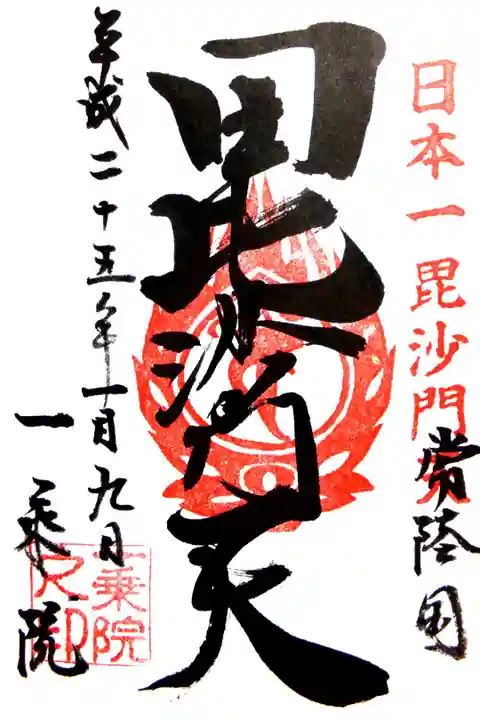 日本一毘沙門
常陸国
毘沙門天
平成二十五年十一月九日
一乗院
一乗院之印